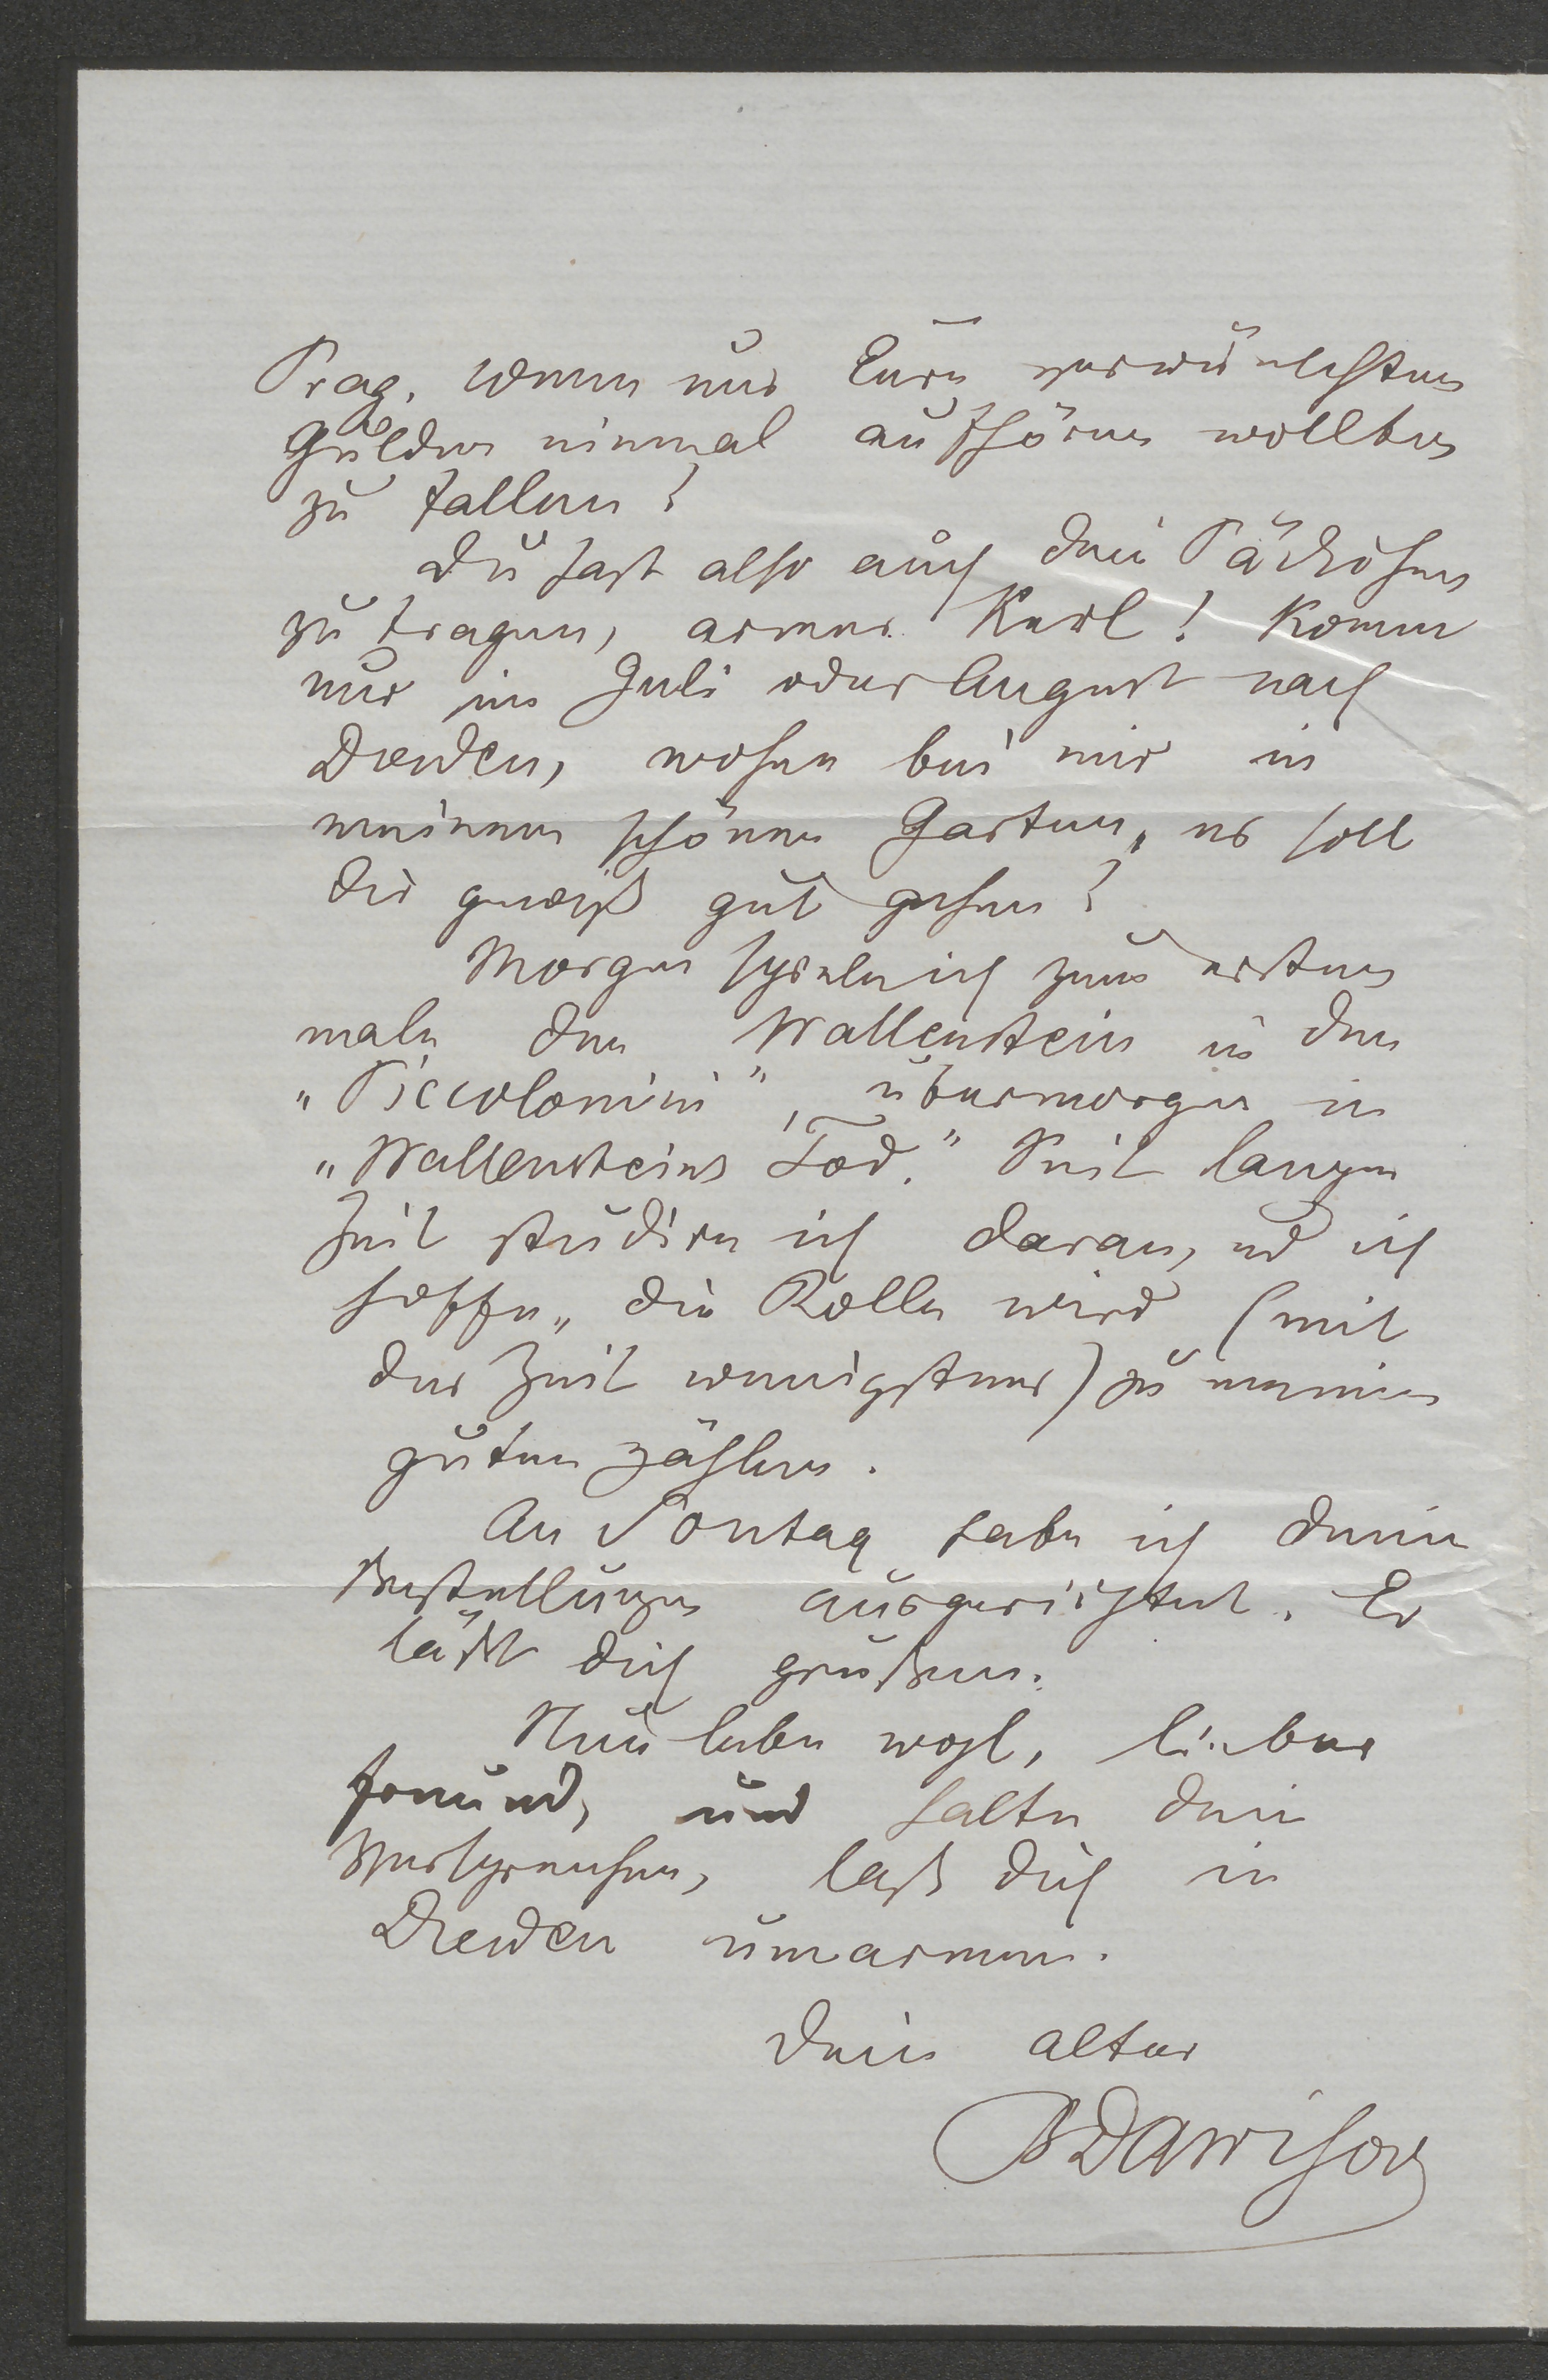 Prag, wenn nur Eure verwünschten
Gulden einmal aufhören wollten
zu fallen!
Du hast also auch dein Päckchen
zu tragen, armer Kerl! Komm
nur im Juli oder August nach
Dresden, wohne bei mir in
meinem schönen Garten, es soll
dir gewiß gut gehen!
Morgen spiele ich zum ersten
male den Wallenstein in den
"Piccolomini", übermorgen in
"Wallensteins Tod." Seit langer
Zeit studire ich daran, und ich
hoffe, die Rolle wird (mit
der Zeit wenigstens) zu meinen
guten zählen.
An Sontag habe ich deine
Bestellungen ausgerichtet. Er
läßt dich grüßen.
Nun lebe wohl, lieber
Freund, und halte dein
Versprechen, laß dich in
Dresden umarmen.
Dein alter
BDawison